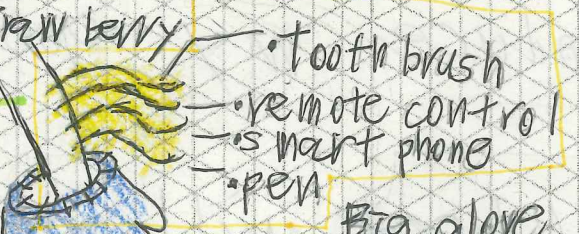 berry
• tooth brush
• remote control
• smart phone
• pen
Big glove